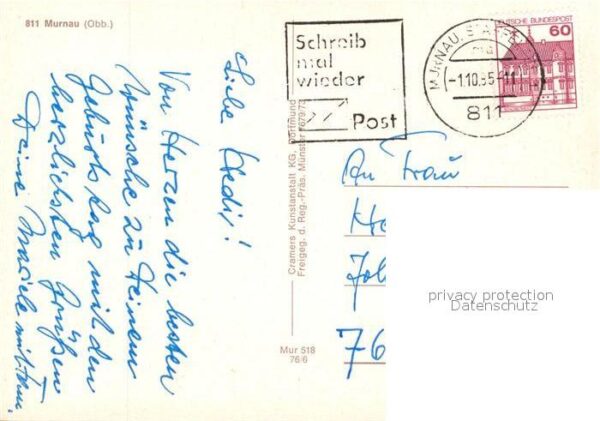 811 Murnau (Obb.)
Liebe Hedi!
Von Herzen die besten
Wünsche zu Deinem
Geburtstag mit den
herzlichsten Grüßen
Deine
Cramers Kunstanstalt KG, Dortmund
Freigeg. d. Reg.-Präs. Münster 7679/73
Mur 518
76/6
Schreib
mal
wieder
Post
MURNAU, STAFFELSEE
-1.10.85-11
811
DEUTSCHE BUNDESPOST
60
An Frau
He
Joh
76
privacy protection
Datenschutz